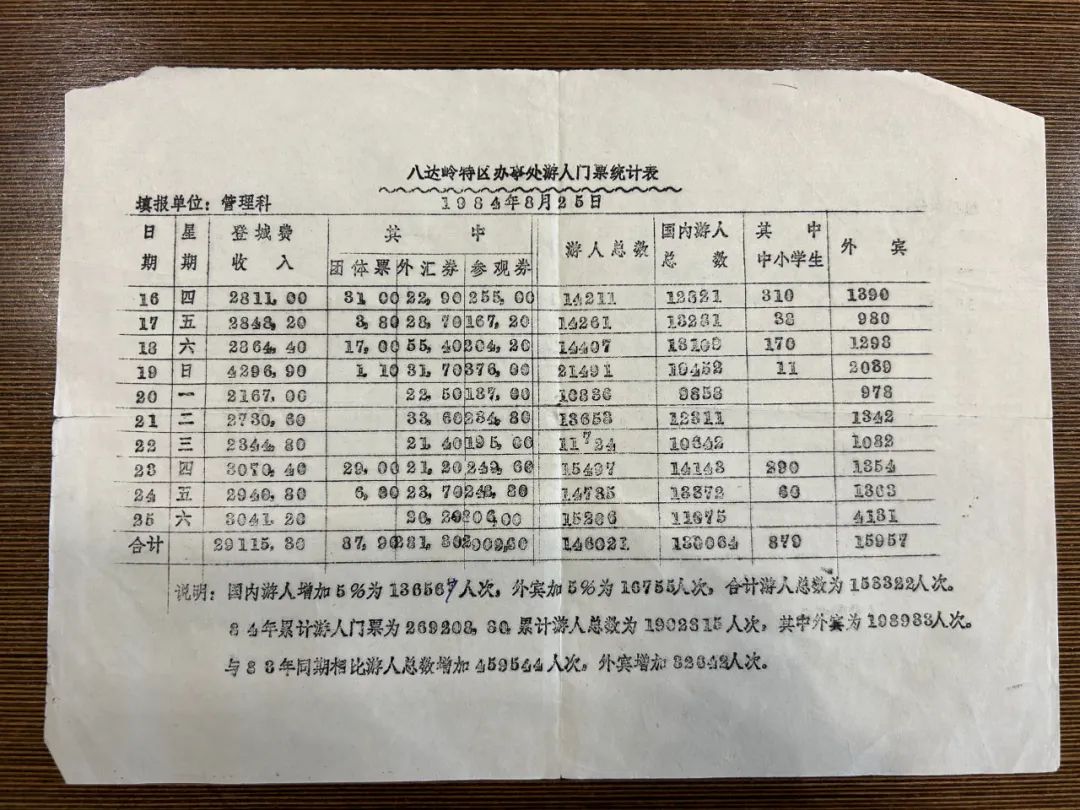 八达岭特区办事处游人门票统计表
填报单位：管理科 1984年8月25日
日期 星期 登城费收入 其中 游人总数 国内游人总数 其中中小学生 外宾
团体票 外汇券 参观券
16 四 2811,00 31,00 22,90 255,00 14211 12821 310 1390
17 五 2848,20 3,80 28,70 167,20 14261 13281 38 980
18 六 2864,40 17,00 55,40 304,20 14407 13109 170 1298
19 日 4296,90 1 10 31,70 376,00 21491 19452 11 2039
20 一 2167,00 22,50 187,00 10836 9858 978
21 二 2730,60 33,60 234,80 13653 12311 1342
22 三 2344,80 21,40 195,00 11724 10642 1082
23 四 3070,40 29,00 21,20 249,60 15497 14143 290 1354
24 五 2940,80 6,00 23,70 248,80 14735 13372 60 1363
25 六 3041,20 20,20 15206 11075 4131
合计 29115,30 87,90 281,30 146021 130064 879 15957
说明：国内游人增加5%为136567人次，外宾加5%为16755人次，合计游人总数为153322人次。
84年累计游人门票为269208,80.累计游人总数为1902815人次，其中外宾为198933人次。
与83年同期相比游人总数增加459544人次，外宾增加32642人次。